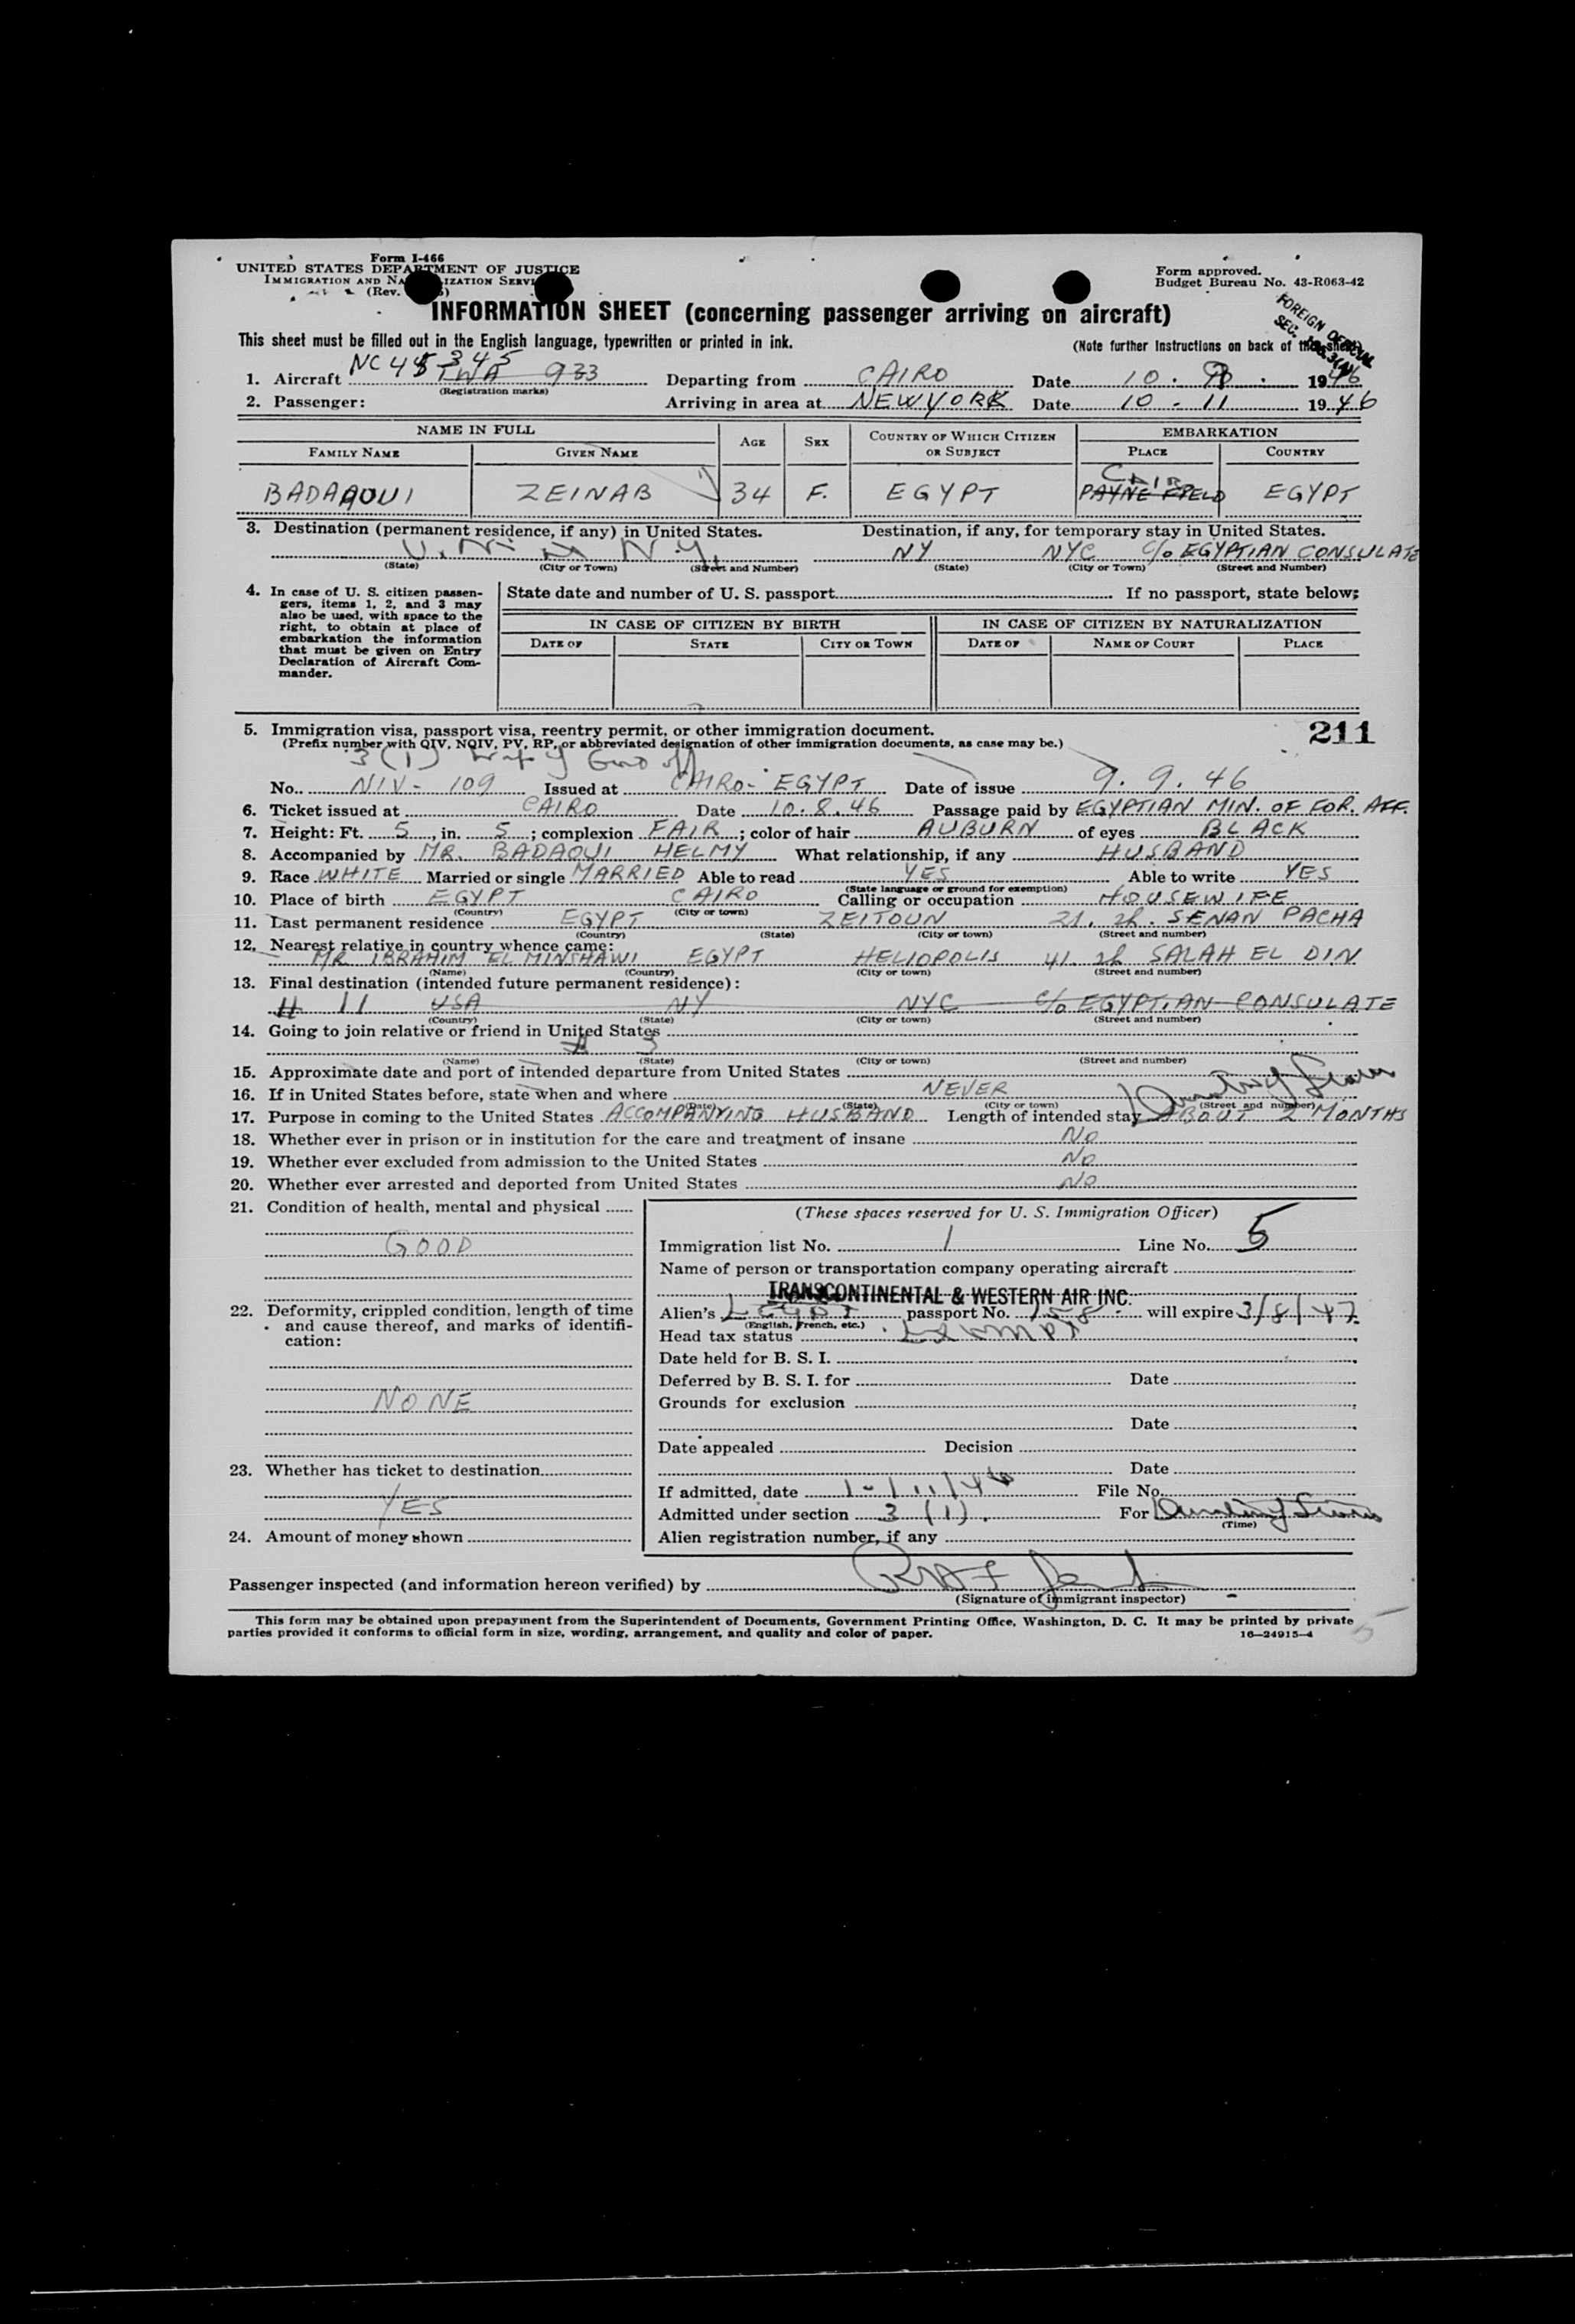 Form I-466
UNITED STATES DEPARTMENT OF JUSTICE
IMMIGRATION AND NATURALIZATION SERVICE
(Rev.
Form approved.
Budget Bureau No. 43-R063-42
INFORMATION SHEET (concerning passenger arriving on aircraft)
FOREIGN OFFICIAL
SEC.
This sheet must be filled out in the English language, typewritten or printed in ink.
(Note further Instructions on back of this sheet)
NC 45345
1. Aircraft TWA 933 Departing from CAIRO Date 10. 1946
(Registration marks)
2. Passenger: Arriving in area at NEW YORK Date 10-11 1946
NAME IN FULL AGE SEX COUNTRY OF WHICH CITIZEN OR SUBJECT EMBARKATION
FAMILY NAME GIVEN NAME PLACE COUNTRY
BADAAOUI ZEINAB 34 F. EGYPT PAYNE FIELD CAIRO EGYPT
3. Destination (permanent residence, if any) in United States. Destination, if any, for temporary stay in United States.
N.Y. NY NYC C/o EGYPTIAN CONSULATE
(State) (City or Town) (Street and Number) (State) (City or Town) (Street and Number)
4. In case of U. S. citizen passengers, items 1, 2, and 3 may also be used, with space to the right, to obtain at place of embarkation the information that must be given on Entry Declaration of Aircraft Commander.
State date and number of U. S. passport If no passport, state below:
IN CASE OF CITIZEN BY BIRTH IN CASE OF CITIZEN BY NATURALIZATION
DATE OF STATE CITY OR TOWN DATE OF NAME OF COURT PLACE
211
5. Immigration visa, passport visa, reentry permit, or other immigration document.
(Prefix number with QIV, NQIV, PV, RP, or abbreviated designation of other immigration documents, as case may be.)
3 (1)
No. NIV- 109 Issued at CAIRO- EGYPT Date of issue 9. 9. 46
6. Ticket issued at CAIRO Date 10.8.46 Passage paid by EGYPTIAN MIN. OF FOR. AFF.
7. Height: Ft. 5, in. 5; complexion FAIR; color of hair AUBURN of eyes BLACK
8. Accompanied by MR. BADAOUI HELMY What relationship, if any HUSBAND
9. Race WHITE Married or single MARRIED Able to read YES Able to write YES
(State language or ground for exemption)
10. Place of birth EGYPT CAIRO Calling or occupation HOUSEWIFE
(Country) (City or town)
11. Last permanent residence EGYPT ZEITOUN 21. sh. SENAN PACHA
(Country) (State) (City or town) (Street and number)
12. Nearest relative in country whence came:
MR IBRAHIM EL MINSHAWI EGYPT HELIOPOLIS 41. sh SALAH EL DIN
(Name) (Country) (City or town) (Street and number)
13. Final destination (intended future permanent residence):
# 11 USA NY NYC C/o EGYPTIAN CONSULATE
(Country) (State) (City or town) (Street and number)
14. Going to join relative or friend in United States
# 3
(Name) (State) (City or town) (Street and number)
15. Approximate date and port of intended departure from United States
16. If in United States before, state when and where NEVER
(Date) (State) (City or town) (Street and number)
17. Purpose in coming to the United States ACCOMPANYING HUSBAND Length of intended stay ABOUT 2 MONTHS
18. Whether ever in prison or in institution for the care and treatment of insane No
19. Whether ever excluded from admission to the United States No
20. Whether ever arrested and deported from United States No
21. Condition of health, mental and physical
GOOD
22. Deformity, crippled condition, length of time and cause thereof, and marks of identification:
NONE
23. Whether has ticket to destination
YES
24. Amount of money shown
(These spaces reserved for U. S. Immigration Officer)
Immigration list No. 1 Line No. 5
Name of person or transportation company operating aircraft
TRANSCONTINENTAL & WESTERN AIR INC.
Alien's Egypt passport No. 158 will expire 3/8/47
(English, French, etc.)
Head tax status Exempt
Date held for B. S. I.
Deferred by B. S. I. for Date
Grounds for exclusion
Date
Date appealed Decision
Date
If admitted, date 10/11/46 File No.
Admitted under section 3 (1). For
(Time)
Alien registration number, if any
Passenger inspected (and information hereon verified) by
(Signature of immigrant inspector)
This form may be obtained upon prepayment from the Superintendent of Documents, Government Printing Office, Washington, D. C. It may be printed by private
parties provided it conforms to official form in size, wording, arrangement, and quality and color of paper. 16—24915-4